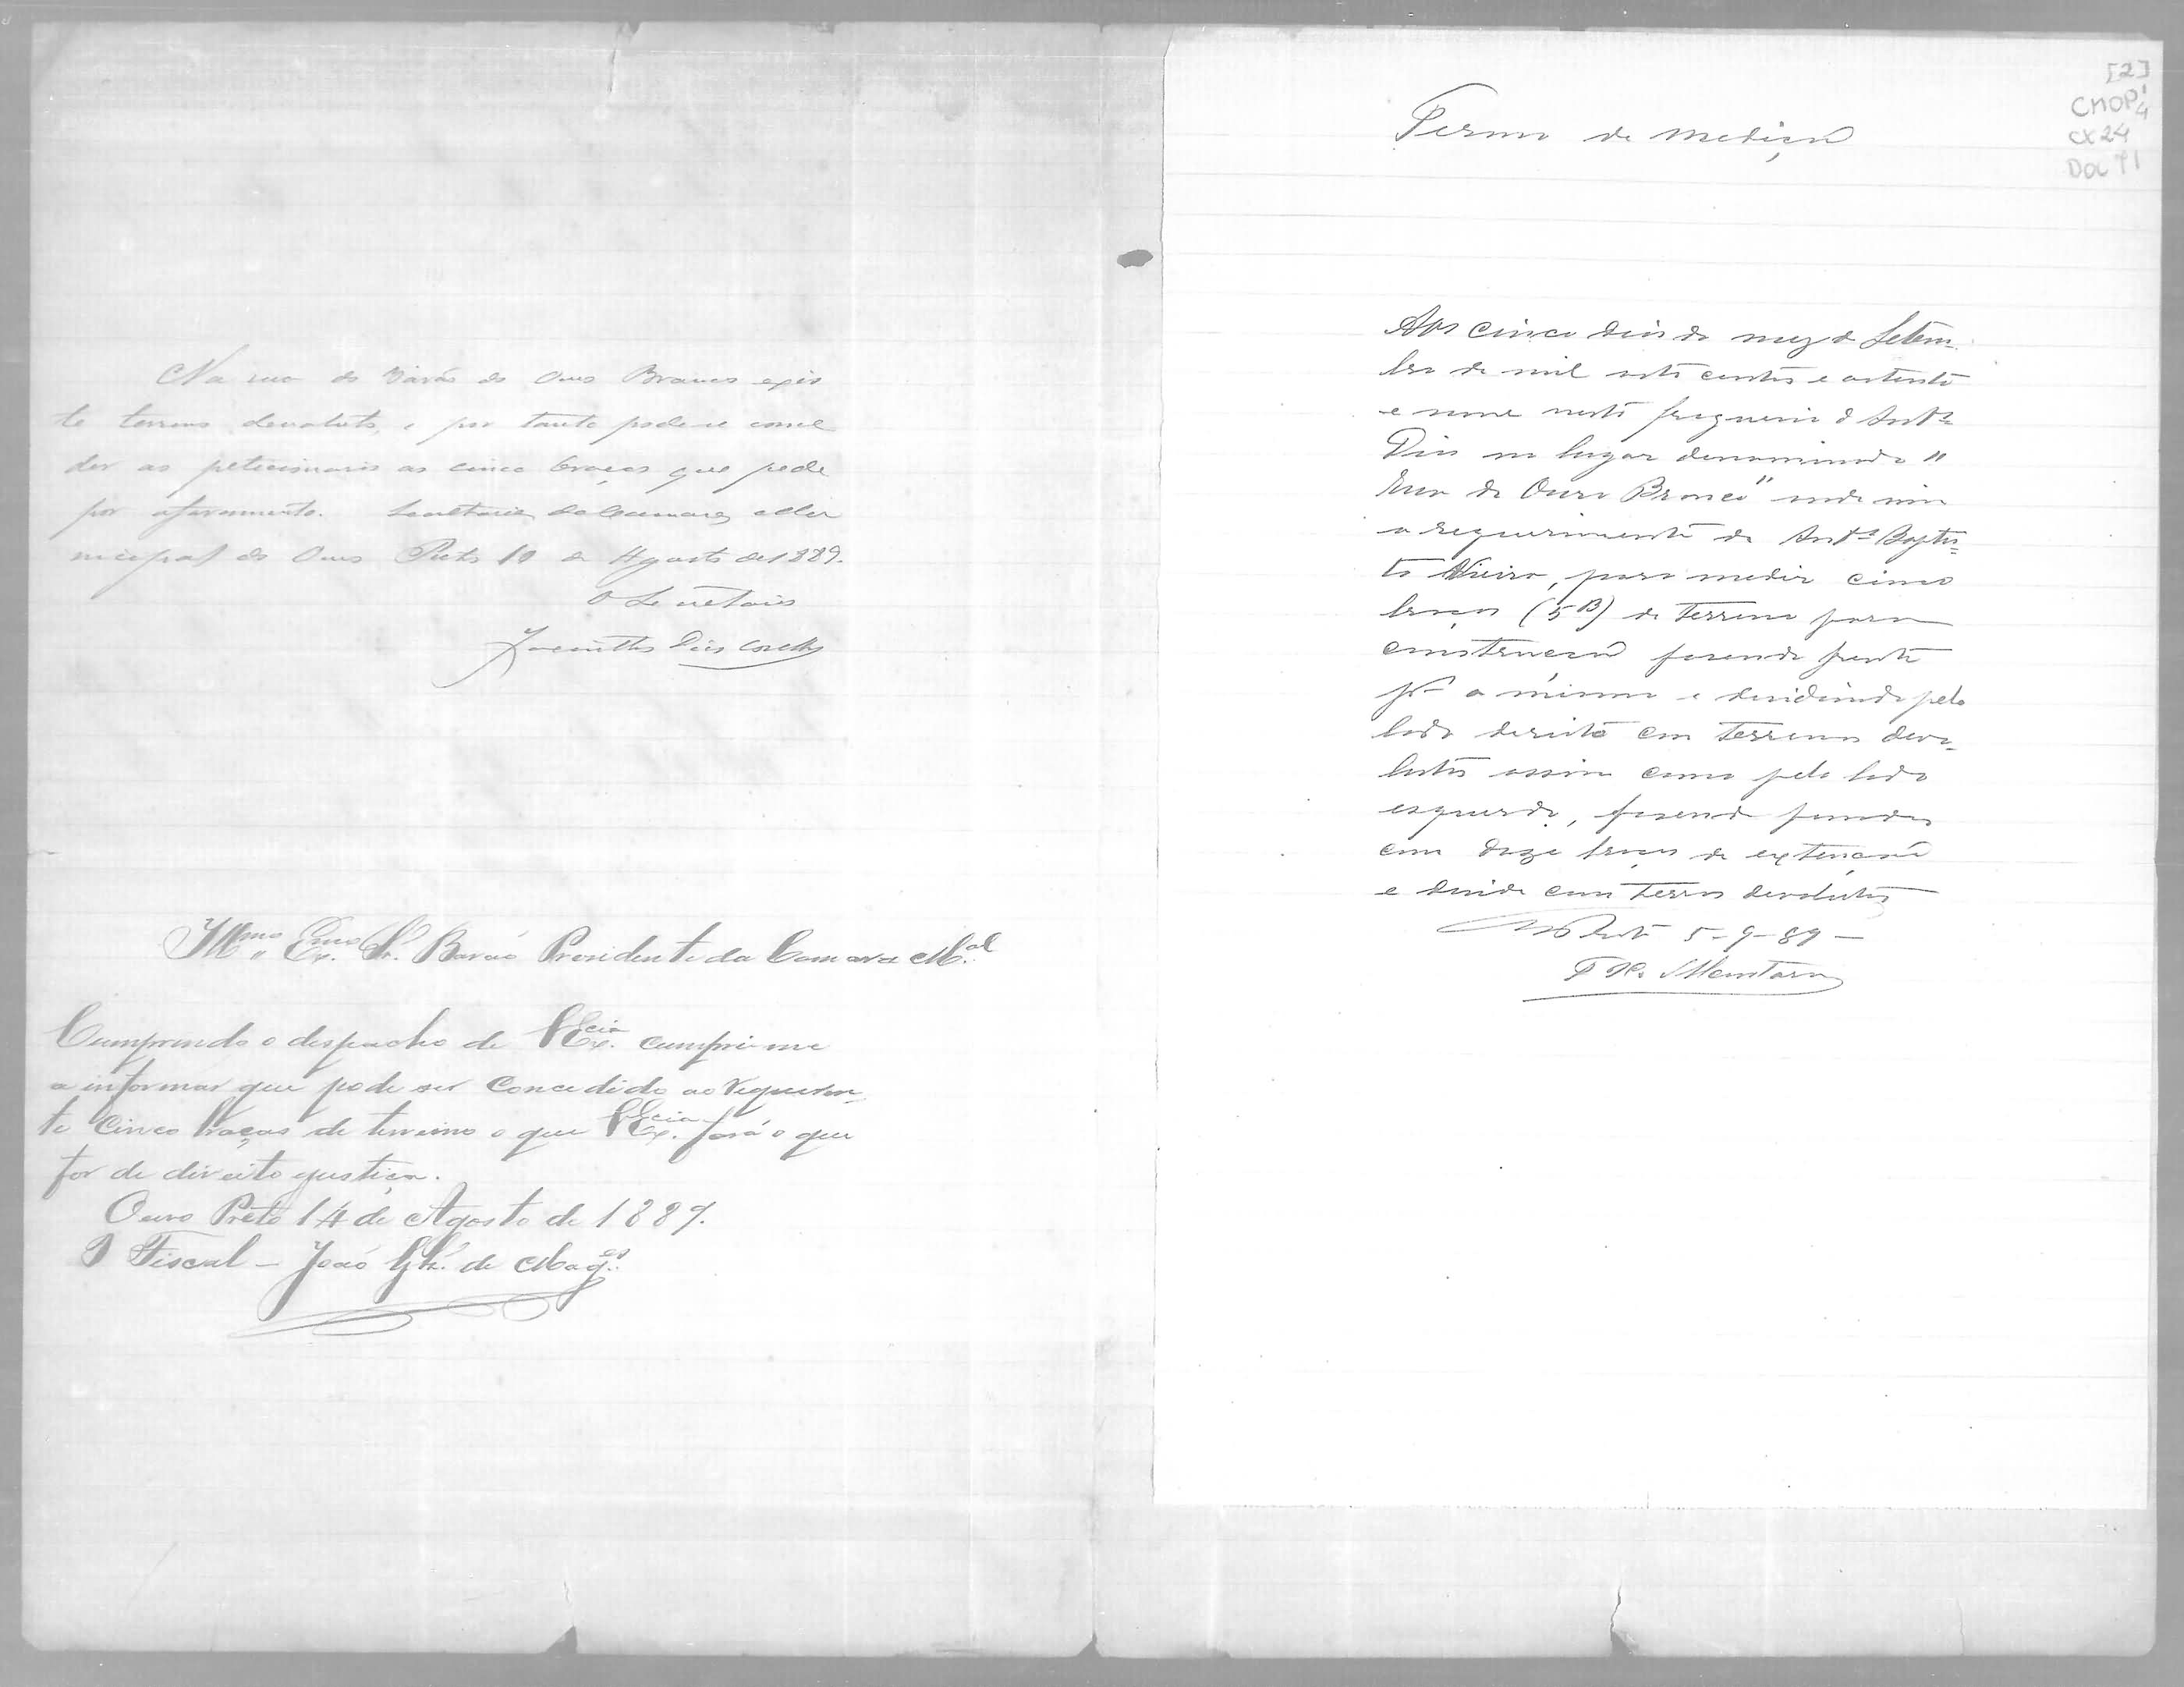 Na rua do Barão do Ouro Branco exis
te terreno devoluto, e por tanto pode-se conce
der ao peticionario as cinco braças que pede
por aforamento. Secretaria da Camara Mu
nicipal do Ouro Preto 10 de Agosto de 1889.
O Secretario
Jacintho Dias Coelho
Illmo Exmo Sr. Barão Presidente da Camara M.al
Cumprindo o despacho de VExcia cumpri-me
a informar que pode ser concedido ao requeren
te cinco braças de terreno o que VExcia fará o que
for de direito e justiça.
Ouro Preto 14 de Agosto de 1889.
O Fiscal – João de Mag.es
[2]
CMOP
CX 24
DOC 71
Termo de medição
Aos cinco dias do mez de Setem-
bro de mil oito centos e oitenta
e nove nesta freguesia de Ant.o
Dias no lugar denominado "
Rua do Ouro Branco" onde vim
a requerimento de Ant.o Baptis=
ta Vieira, para medir cinco
braças (5B) de terreno para
construcção fasendo frente
p.a a mesma e devidindo pelo
lado dereito com terrenos devo-
lutos assim como pelo lado
esquerdo, fasendo fundos
com doze braças de extenção
e devide com terras devolutas
Ouro Preto 5-9-89 –